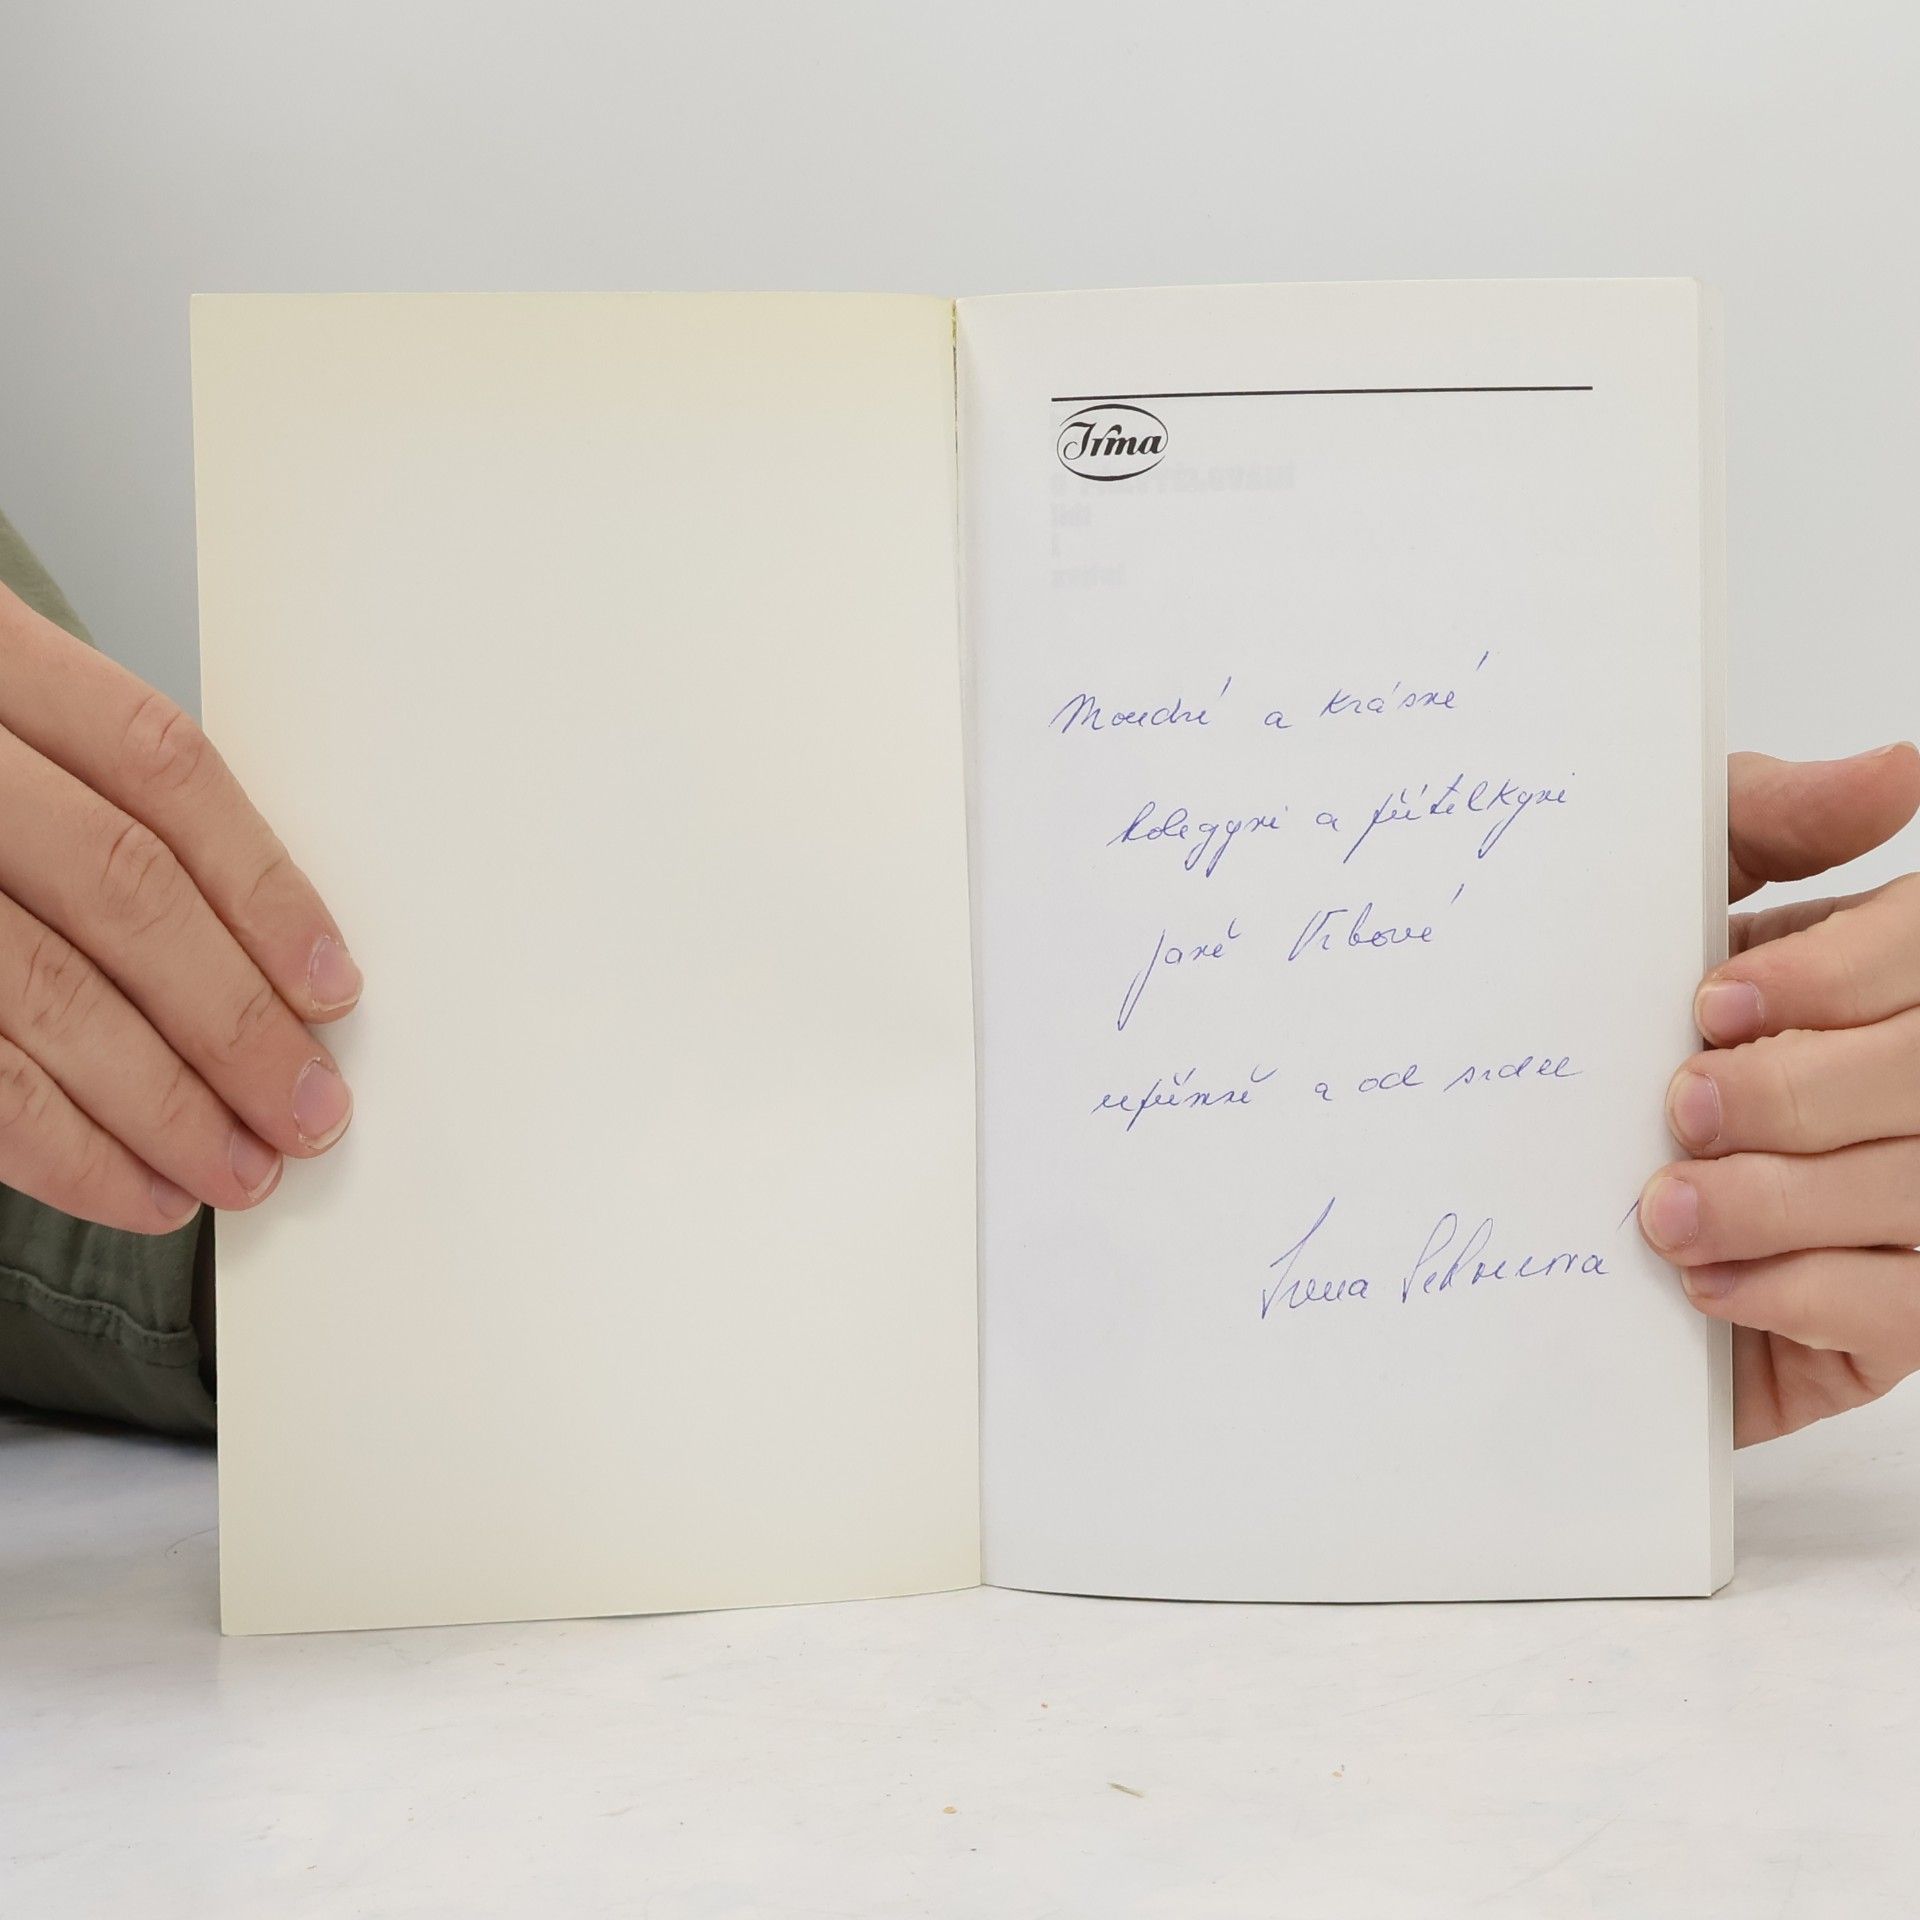 Irma
Moudré a krásné
kolegyni a přítelkyni
Janě Vrbové
upřímně a od srdce
Irena